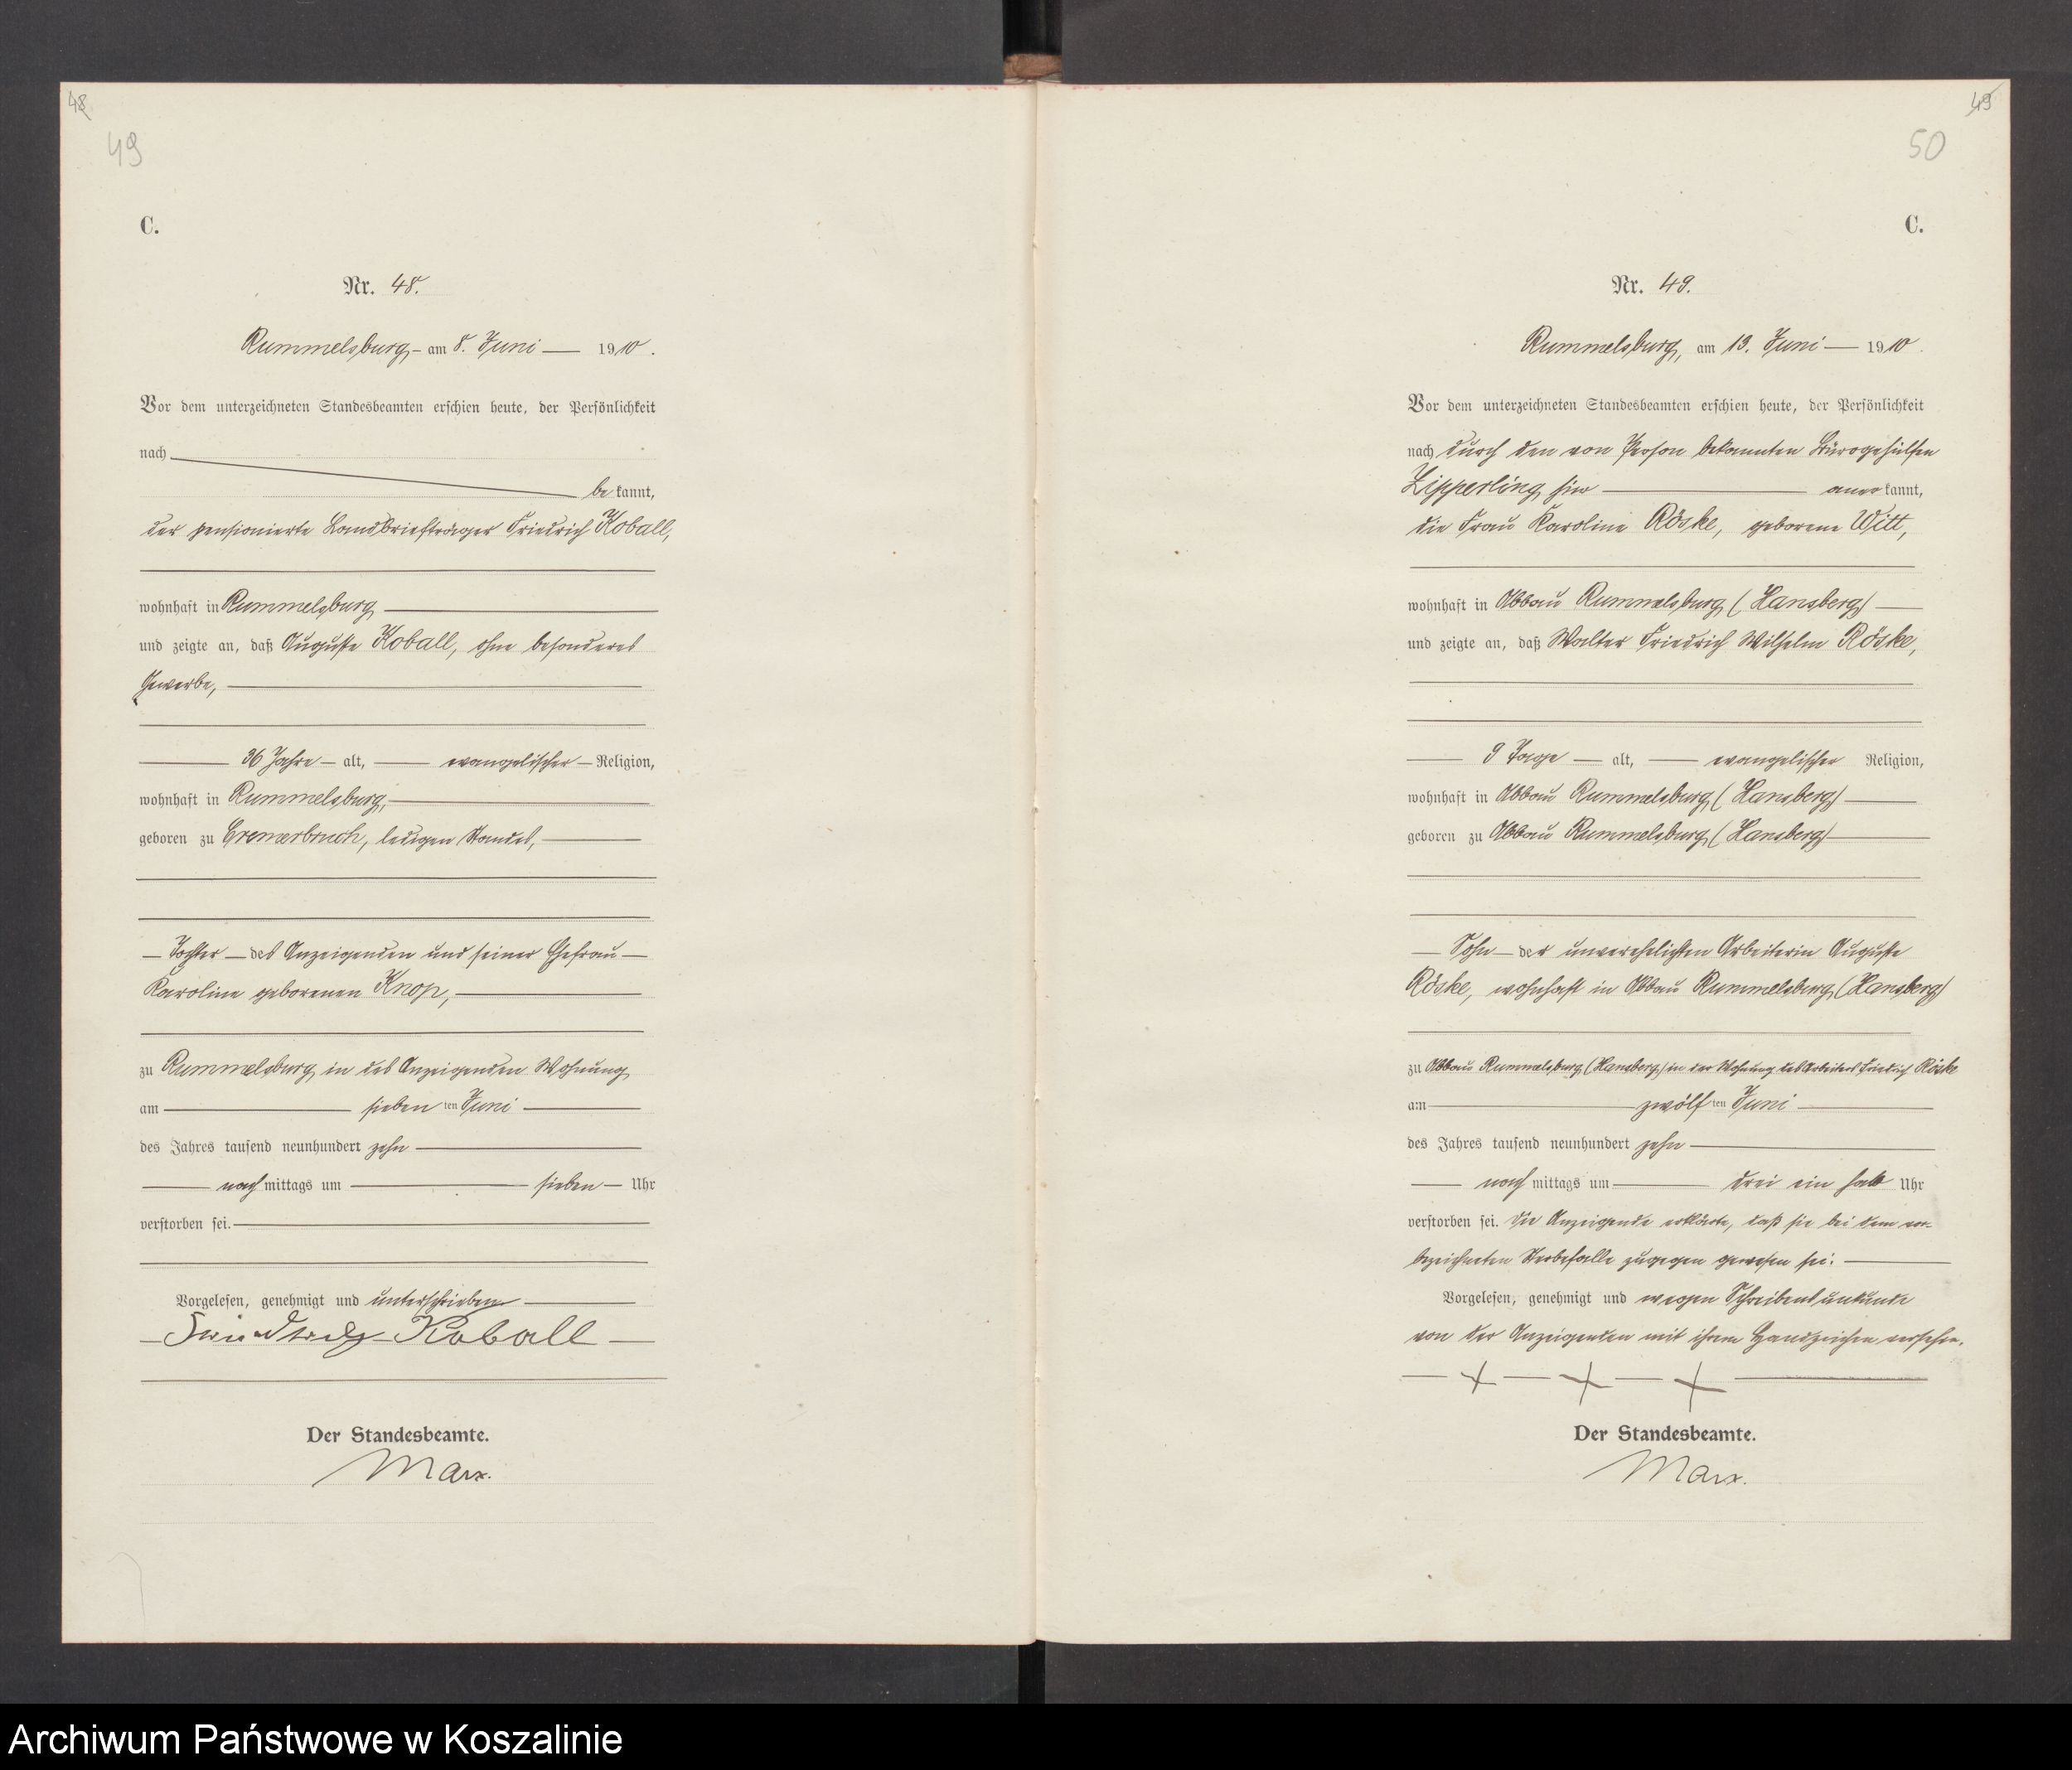 48
49
C.
Nr. 48.
Rummelsburg, am 8. Juni 1910.
Vor dem unterzeichneten Standesbeamten erschien heute, der Persönlichkeit
nach
bekannt,
der pensionierte Landbriefträger Friedrich Koball,
wohnhaft in Rummelsburg
und zeigte an, daß Auguste Koball, ohne besonderes
Gewerbe,
36 Jahre alt, evangelischer Religion,
wohnhaft in Rummelsburg,
geboren zu Cremerbruch, ledigen Standes,
Tochter des Anzeigenden und seiner Ehefrau
Karoline geborenen Knop,
zu Rummelsburg in des Anzeigenden Wohnung
am siebenten Juni
des Jahres tausend neunhundert zehn
nachmittags um sieben Uhr
verstorben sei.
Vorgelesen, genehmigt und unterschrieben
Friedrich Koball
Der Standesbeamte.
Marx.
49
50
C.
Nr. 49.
Rummelsburg, am 13. Juni 1910
Vor dem unterzeichneten Standesbeamten erschien heute, der Persönlichkeit
nach durch den von Person bekannten Bürogehülfen
Zipperling hier anerkannt,
die Frau Karoline Röske, geborene Witt,
wohnhaft in Abbau Rummelsburg (Hansberg)
und zeigte an, daß Walter Friedrich Wilhelm Röske,
9 Tage alt, evangelischer Religion,
wohnhaft in Abbau Rummelsburg (Hansberg)
geboren zu Abbau Rummelsburg (Hansberg)
Sohn der unverehelichten Arbeiterin Auguste
Röske, wohnhaft in Abbau Rummelsburg (Hansberg)
zu Abbau Rummelsburg (Hansberg) in der Wohnung des Arbeiters Friedrich Röske
am zwölften Juni
des Jahres tausend neunhundert zehn
nachmittags um drei ein halb Uhr
verstorben sei. Die Anzeigende erklärte, daß sie bei dem vor-
bezeichneten Sterbefalle zugegen gewesen sei.
Vorgelesen, genehmigt und wegen Schreibensunkunde
von der Anzeigenden mit ihrem Handzeichen versehen.
+ + +
Der Standesbeamte.
Marx.
Archiwum Państwowe w Koszalinie